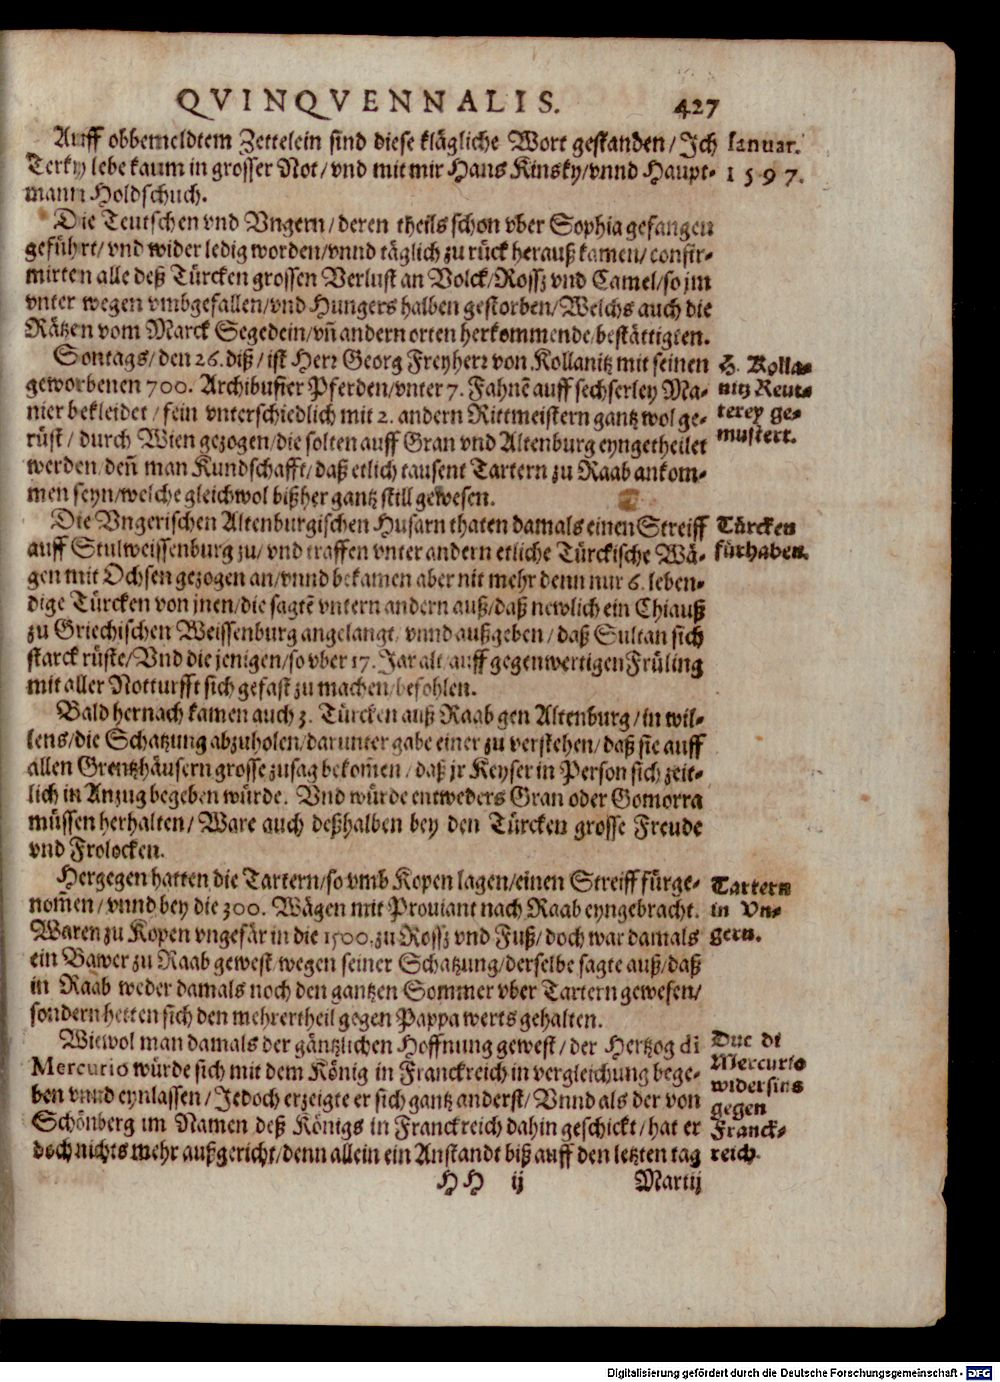 QVINQVENNALIS. 427
Auff obbemeldtem Zettelein sind diese klägliche Wort gestanden/Ich
Terky lebe kaum in grosser Not/vnd mit mir Hans Kinsky/vnnd Haupt-
mann Holdschuch.
Ianuar.
1597.
Die Teutschen vnd Vngern/deren theils schon vber Sophia gefangen
geführt/vnd wider ledig worden/vnnd täglich zu rück herauß kamen/confir-
mirten alle deß Türcken grossen Verlust an Volck/Rossz vnd Camel/so jm
vnter wegen vmbgefallen/vnd Hungers halben gestorben/Welchs auch die
Rätzen vom Marck Segedein/vñ andern orten herkommende/bestättigten.
Sontags/den 26. diß/ist Herr Georg Freyherr von Kollanitz mit seinen
geworbenen 700. Archibusier Pferden/vnter 7. Fahnẽ auff sechserley Ma-
nier bekleidet/fein vnterschiedlich mit 2. andern Rittmeistern gantz wol ge-
rüst/durch Wien gezogen/die solten auff Gran vnd Altenburg eyngetheilet
werden/deñ man Kundschafft/daß etlich tausent Tartern zu Raab ankom-
men seyn/welche gleichwol bißher gantz still gewesen.
H. Kolla-
nitz Reut-
terey ge-
mustert.
Die Vngerischen Altenburgischen Husarn thaten damals einen Streiff
auff Stulweissenburg zu/vnd traffen vnter andern etliche Türckische Wä-
gen mit Ochsen gezogen an/vnnd bekamen aber nit mehr denn nur 6. leben-
dige Türcken von jnen/die sagtẽ vntern andern auß/daß newlich ein Chiauß
zu Griechischen Weissenburg angelangt/vnnd außgeben/daß Sultan sich
starck rüste/Vnd die jenigen/so vber 17. Jar alt/auff gegenwertigen Früling
mit aller Notturfft sich gefast zu machen/befohlen.
Türcken
fürhaben.
Bald hernach kamen auch 3. Türcken auß Raab gen Altenburg/in wil-
lens/die Schatzung abzuholen/darunter gabe einer zu verstehen/daß sie auff
allen Grentzhäusern grosse zusag bekom̃en/daß jr Keyser in Person sich zeit-
lich in Anzug begeben würde. Vnd würde entweders Gran oder Gomorra
müssen herhalten/Ware auch deßhalben bey den Türcken grosse Freude
vnd Frolocken.
Hergegen hatten die Tartern/so vmb Kopen lagen/einen Streiff fürge-
nom̃en/vnnd bey die 300. Wägen mit Prouiant nach Raab eyngebracht.
Waren zu Kopen vngefär in die 1500. zu Rossz vnd Fuß/doch war damals
ein Bawer zu Raab gewest/wegen seiner Schatzung/derselbe sagte auß/daß
in Raab weder damals noch den gantzen Sommer vber Tartern gewesen/
sondern hetten sich den mehrertheil gegen Pappa werts gehalten.
Tartern
in Vn-
gern.
Wiewol man damals der gäntzlichen Hoffnung gewest/der Hertzog di
Mercurio würde sich mit dem König in Franckreich in vergleichung bege-
ben vnnd eynlassen/Jedoch erzeigte er sich gantz anderst/Vnnd als der von
Schönberg im Namen deß Königs in Franckreich dahin geschickt/hat er
doch nichts mehr außgericht/denn allein ein Anstandt biß auff den letzten tag
Duc di
Mercurio
widersins
gegen
Franck-
reich.
HH ij Martij
Digitalisierung gefördert durch die Deutsche Forschungsgemeinschaft - DFG